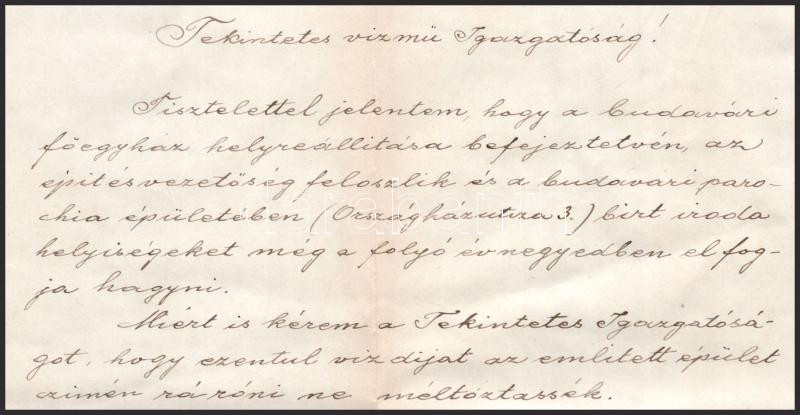 Tekintetes vizmü Igazgatóság!
Tisztelettel jelentem, hogy a budavári
főegyház helyreállitása befejeztetvén, az
épitésvezetőség feloszlik és a budavári paro-
chia épületében (Országházutcza 3.) birt iroda
helyiségeket még a folyó évnegyedben el fog-
ja hagyni.
Miért is kérem a Tekintetes Igazgatósá-
got, hogy ezentul vizdijat az emlitett épület
czimén rá róni ne méltóztassék.